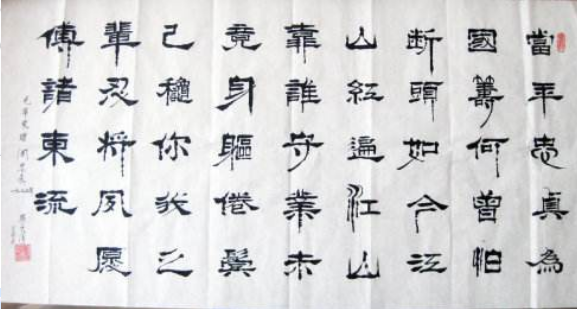 當年忠真為
國籌何曾怕
断頭如今江
山紅遍江山
靠誰守業未
竟身軀倦鬓
己穐你我之
輩忍将夙愿
傅諸東流